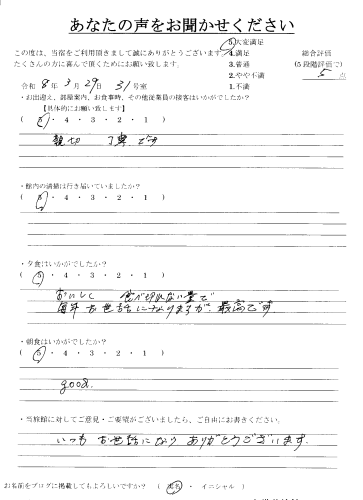 あなたの声をお聞かせください
この度は、当宿をご利用頂きまして誠にありがとうございます。
たくさんの方に喜んで頂くためにお願い致します。
5.大変満足
4.満足
3.普通
2.やや不満
1.不満
総合評価
(5段階評価で)
5 点
令和 8年 3月 29日 31号室
・お出迎え、部屋案内、お食事時、その他従業員の接客はいかがでしたか?
【具体的にお願い致します】
( 5 ・ 4 ・ 3 ・ 2 ・ 1 )
親切 丁寧 です
・館内の清掃は行き届いていましたか?
( 5 ・ 4 ・ 3 ・ 2 ・ 1 )
・夕食はいかがでしたか?
( 5 ・ 4 ・ 3 ・ 2 ・ 1 )
おいしく 食べ切れない量で
毎年 お世話になりますが、最高です
・朝食はいかがでしたか?
( 5 ・ 4 ・ 3 ・ 2 ・ 1 )
good.
・当旅館に対してご意見・ご要望がございましたら、ご自由にお書きください。
いつも お世話になり ありがとうございます.
お名前をブログに掲載してもよろしいですか? ( 実名 ・ イニシャル )